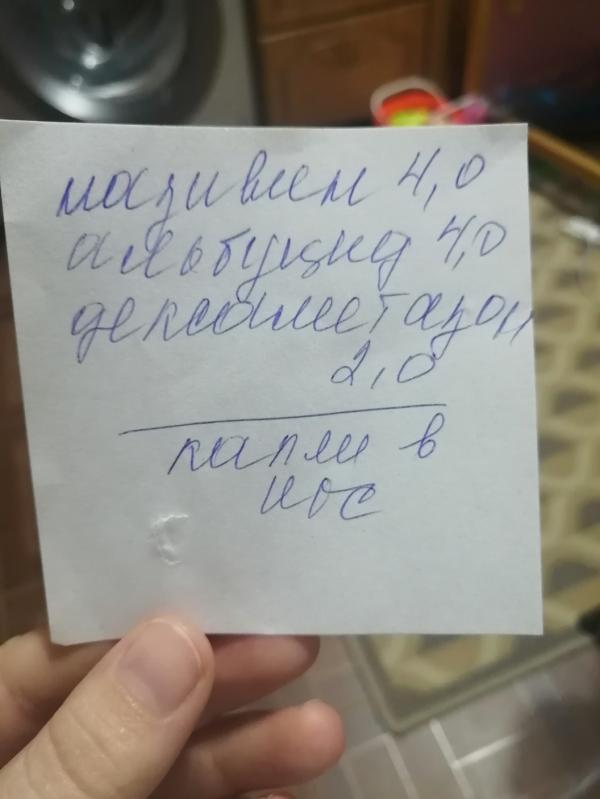 називин 4,0
альбуцид 4,0
дексаметазон
2,0
капли в
нос